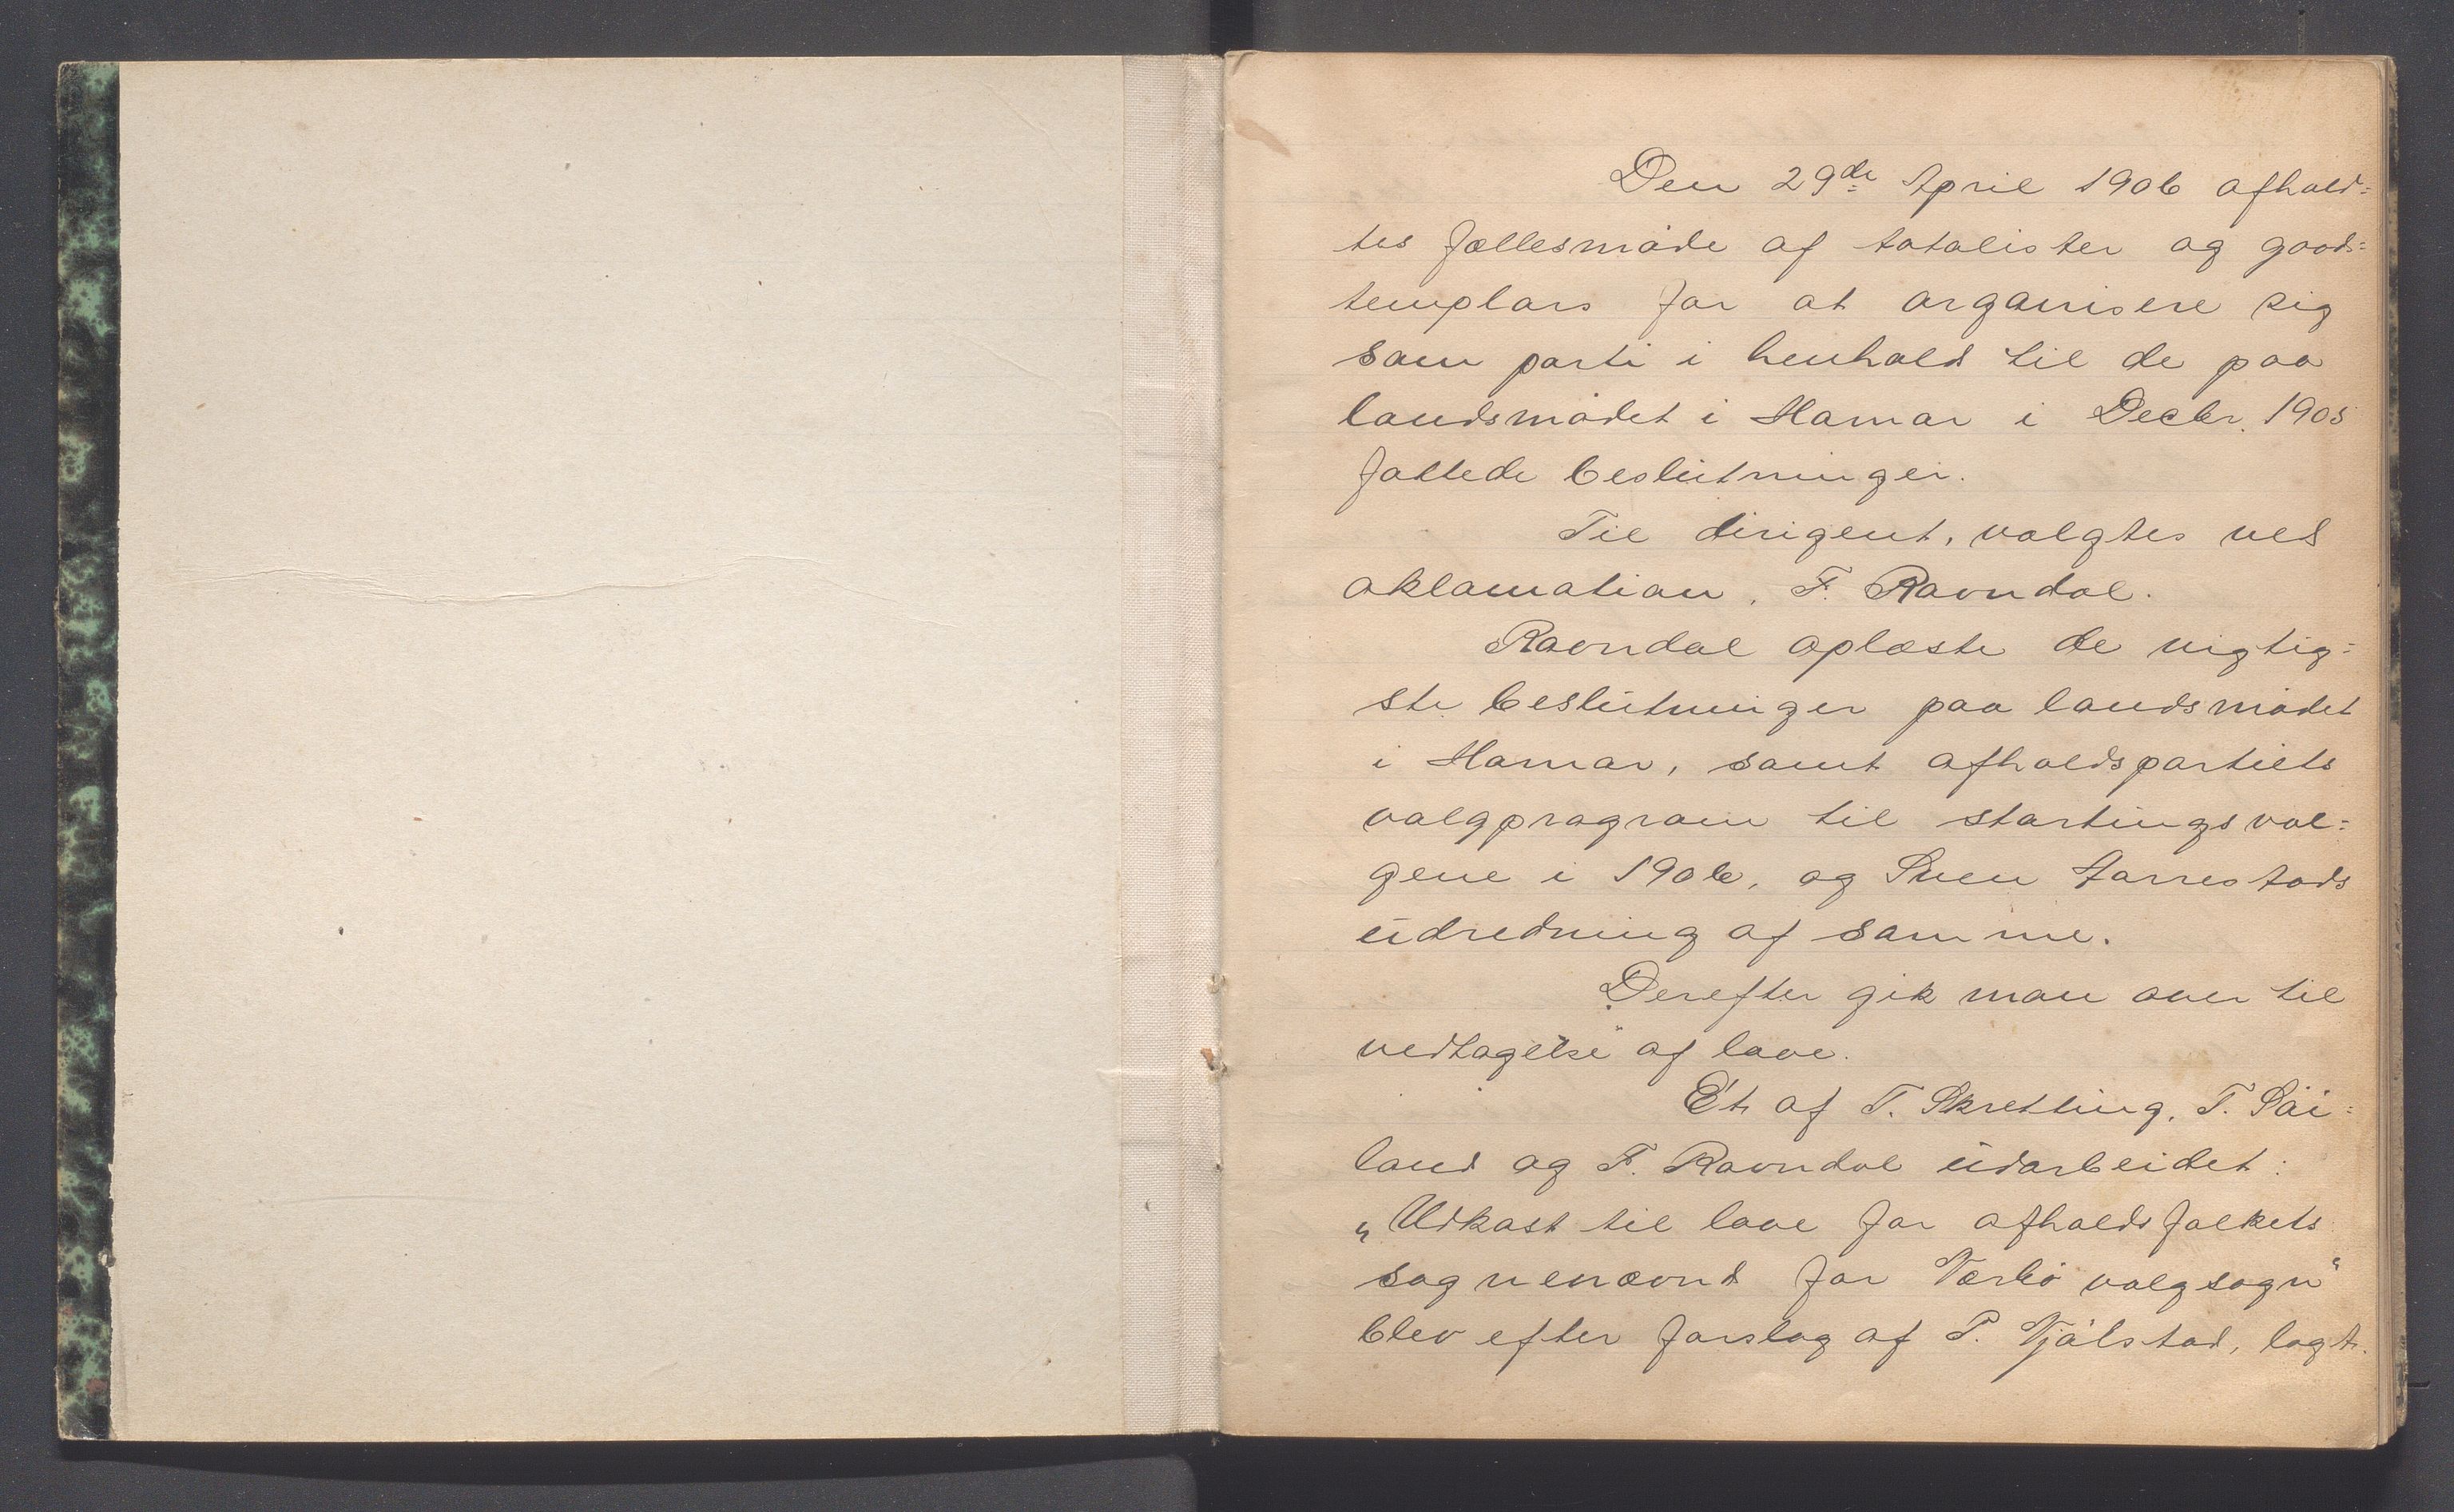 Den 29de April 1906 afhold=
tes fællesmøde af totalister og goods=
templars for at organisere sig
som parti i henhold til de paa
landsmødet i Hamar i Decbr. 1905
fattede beslutninger.
Til dirigent, valgtes ved
aklamation, F. Ravndal.
Ravndal oplæste de vigtig=
ste beslutninger paa landsmødet
i Hamar, samt afholdspartiets
valgprogram til startingsval=
gene i 1906, og Sven Aarrestads
udredning af samme.
Derefter gik man over til
"vedtagelse" af love.
Et af T. Skretting, T. Söi=
land og F. Ravndal udarbeidet:
„Udkast til love for afholdsfolkets
sognenævnd for Varhö valgsogn"
blev efter forslag af P. Tjålstad, lagt